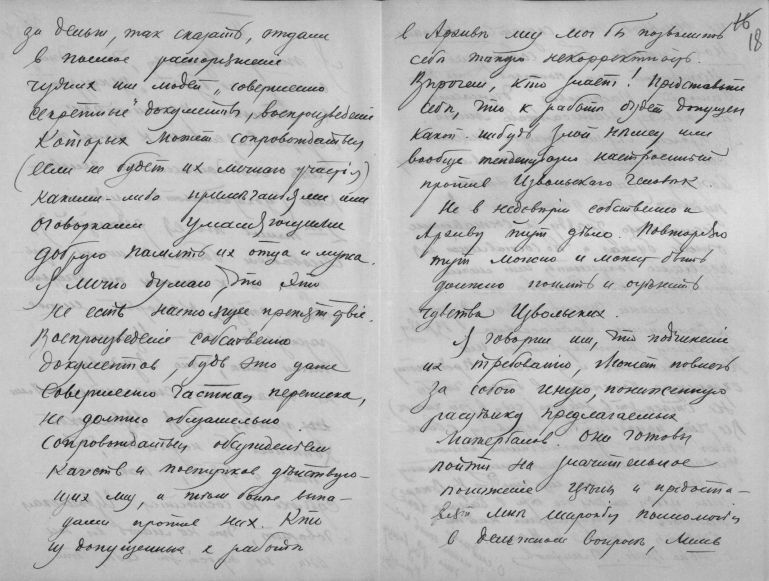 за деньги, так сказать, отдали
в полное распоряжение
чужих им людей „совершенно
секретные" документы, воспроизведение
которых может сопровождаться
(если не будет их личного участия)
какими-либо примечаниями или
оговорками умаляющими
добрую память их отца и мужа.
Я лично думаю, что это
не есть настоящее препятствие.
Воспроизведение собственно
документов, будь это даже
совершенно частная переписка,
не должно обязательно
сопровождаться обсуждением
качеств и поступков действую-
щих лиц, и тем более выпа-
дами против них. Кто
из допущенных к работе
16
18
в Архиве лиц мог бы позволить
себе такую некорректность.
Впрочем, кто знает! Представьте
себе, что к работе будет допущен
какой-нибудь злой или
вообще тенденциозно настроенный
против Извольского человек.
Не в недоверии собственно к
Архиву тут дело. Повторяю
тут можно и может быть
должно понять и оценить
чувства Извольских.
Я говорил им, что подчинение
их требованию, может повлечь
за собою иную, пониженную
расценку предлагаемых
материалов. Они готовы
пойти на значительное
понижение цены и предоста-
вят мне широкие полномочия
в денежном вопросе, лишь